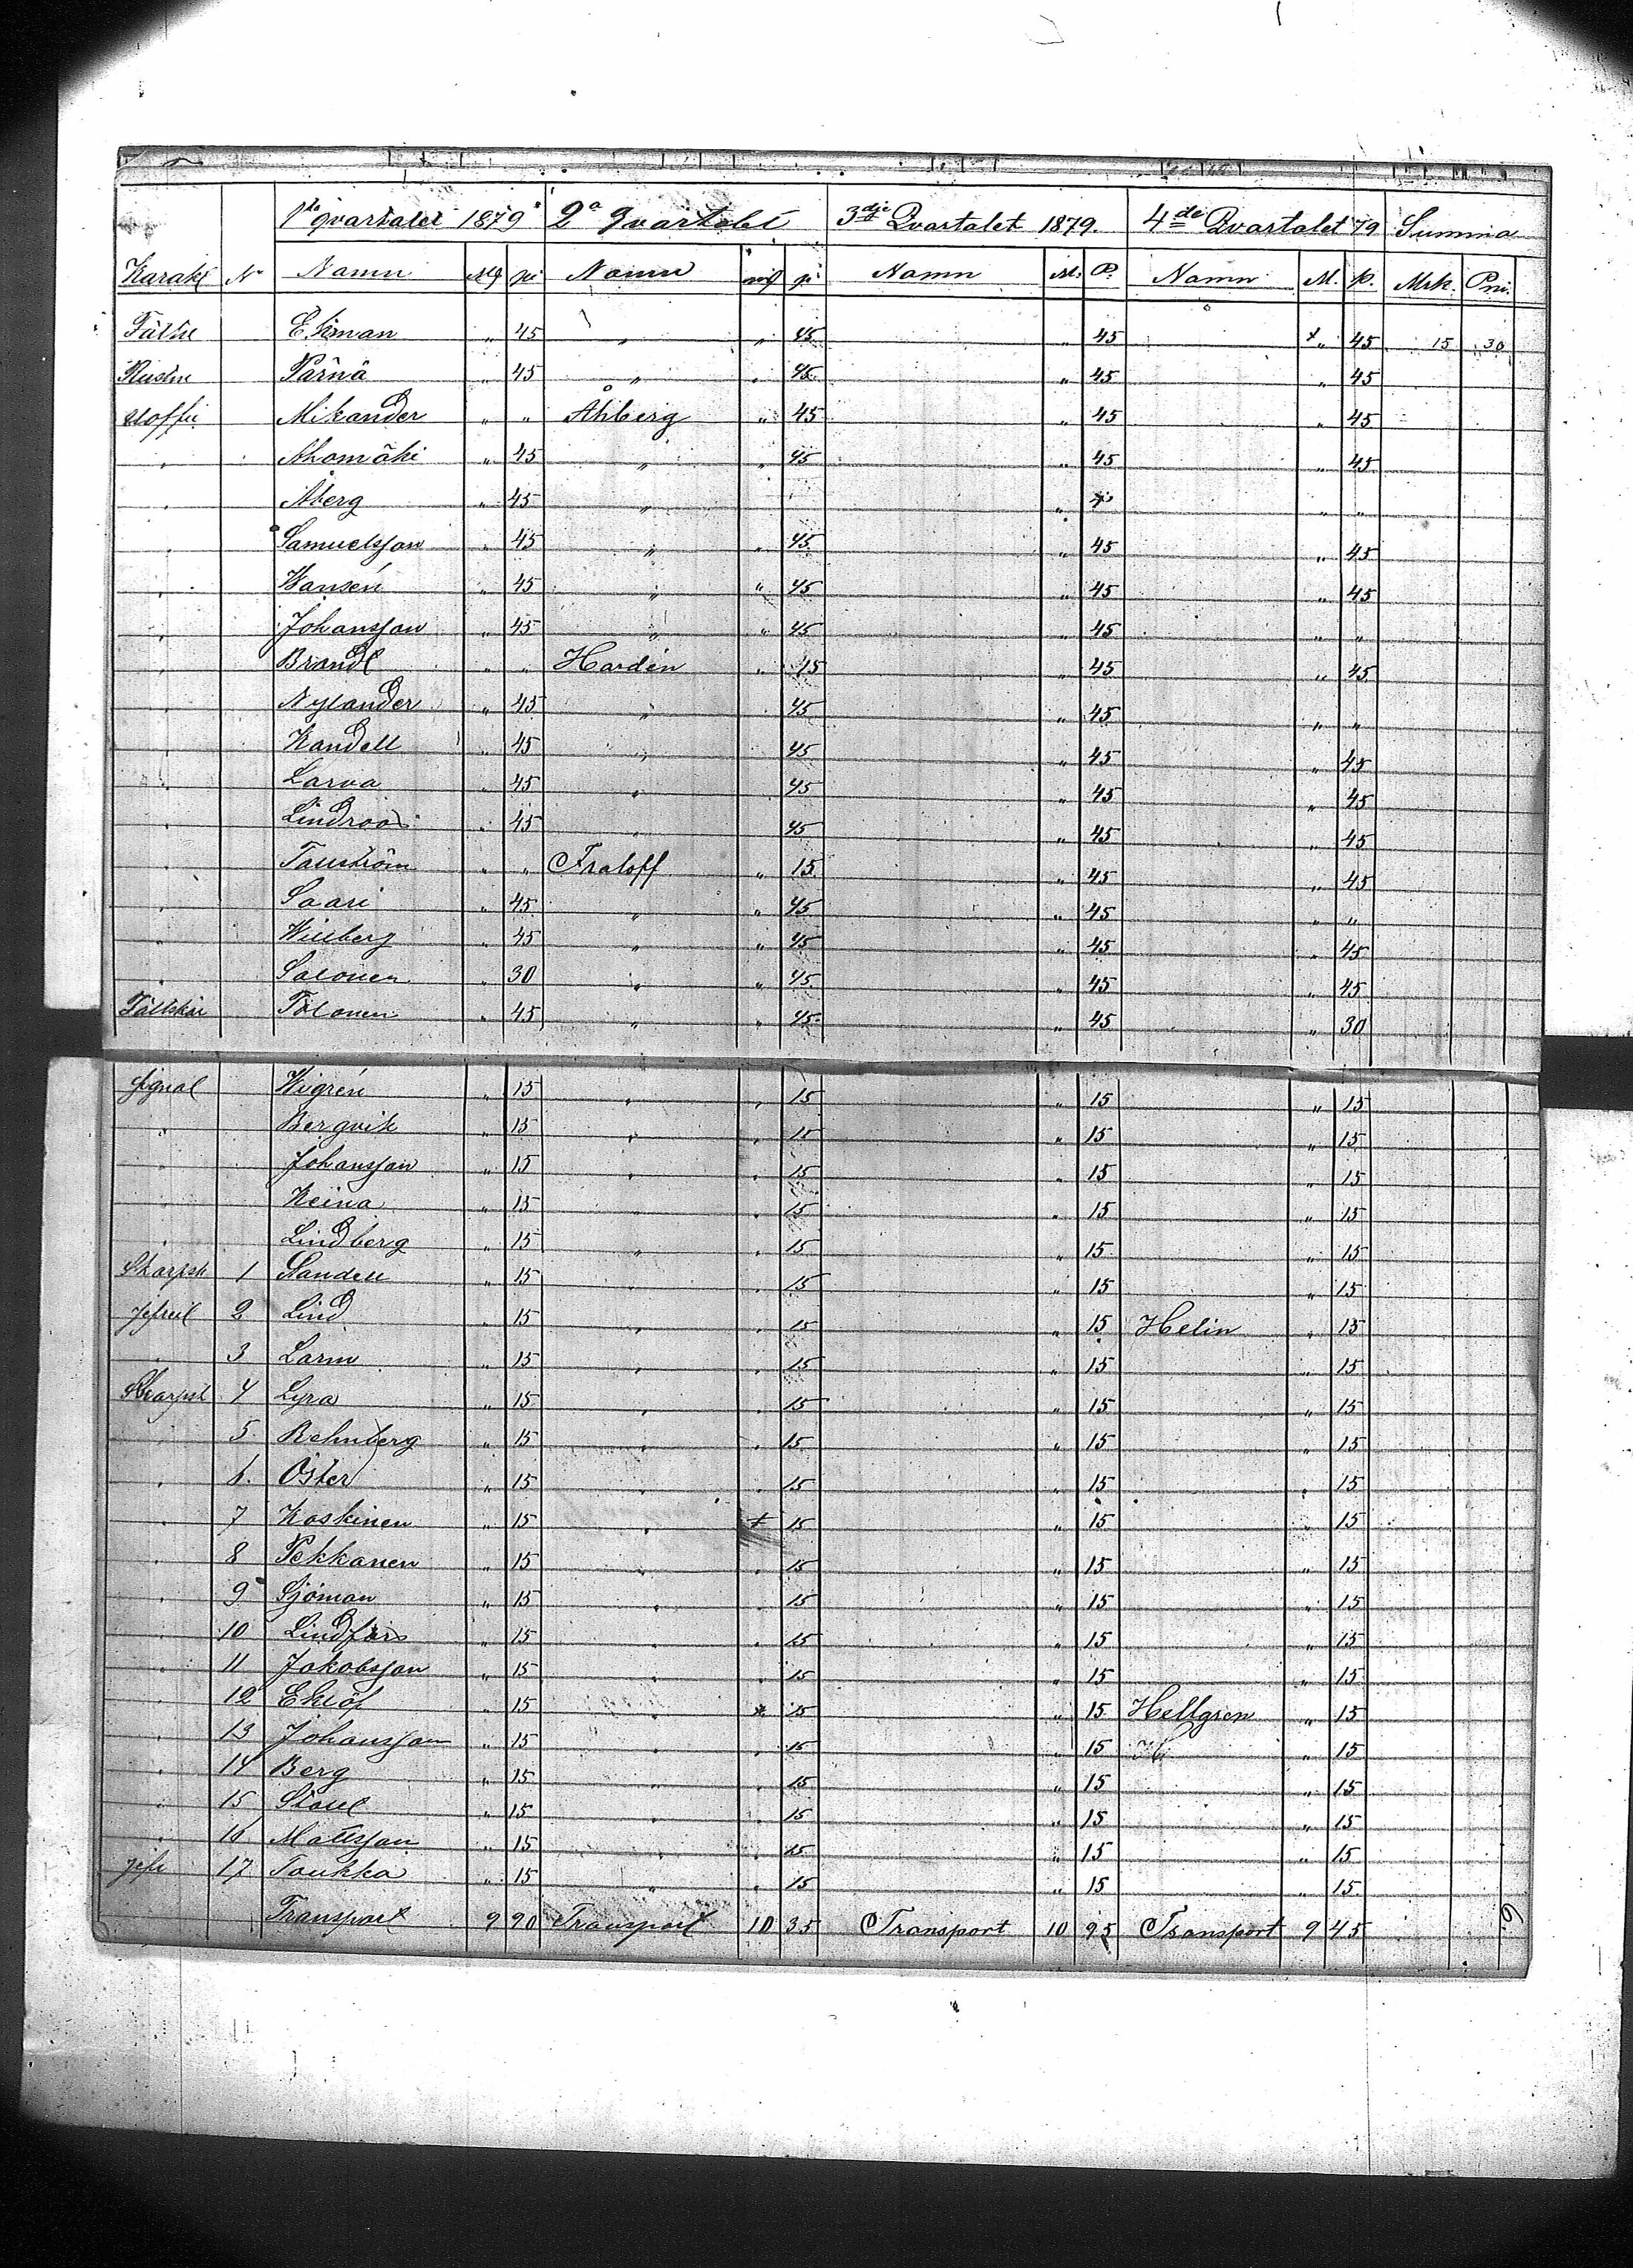 1sta qvartalet 1879 2a qvartalet 3dje Qvartalet 1879. 4de Qvartalet 79 Summa
Karakt No Namn Mf pi Namn mf pi Namn M. P. Namn M. p. Mrk. Pni.
Fältw Ekman „ 45 „ „ 45 „ 45 „ 45 15 30
Rustm Pärnä „ 45 „ „ 45 „ 45 „ 45
Uoffic Mikander „ „ Åhberg „ 45 „ 45 „ 45
„ Ahomäki „ 45 „ „ 45 „ 45 „ 45
„ Åberg „ 45 „ „ „ „
„ Samuelsson „ 45 „ „ 45 „ 45 „ 45
„ Hansén „ 45 „ „ 45 „ 45 „ 45
„ Johansson „ 45 „ „ 45 „ 45 „ „
„ Brandt „ „ Hardén „ 45 „ 45 „ 45
„ Nylander „ 45 „ „ 45 „ 45 „ „
„ Kandell „ 45 „ 45 „ 45 „ 45
„ Larva „ 45 „ 45 „ 45 „ 45
„ Lindroos „ 45 „ 45 „ 45 „ 45
„ „ „ Fraloff „ 15 „ 45 „ 45
„ Saari „ 45 „ „ 45 „ 45 „ „
„ Willberg „ 45 „ „ 45 „ 45 „ 45
„ Salonen „ 30 „ „ 45 „ 45 „ 45
Fältskär Tolonen „ 45 „ „ 45 „ 45 „ 30
Signal Wigrén „ 15 „ „ 15 „ 15 „ 15
„ Bergvik „ 15 „ „ 15 „ 15 „ 15
„ Johansson „ 15 „ „ 15 „ 15 „ 15
„ Keina „ 15 „ „ 15 „ 15 „ 15
„ Lindberg „ 15 „ „ 15 „ 15 „ 15
Skarpsk 1 Sandell „ 15 „ „ 15 „ 15 „ 15
2 Lind „ 15 „ „ 15 „ 15 Helin „ 15
„ 3 Larm „ 15 „ „ 15 „ 15 „ 15
Skarpsk 4 Lyra „ 15 „ „ 15 „ 15 „ 15
„ 5. Rehnberg „ 15 „ „ 15 „ 15 „ 15
„ 6. Öster „ 15 „ „ 15 „ 15 „ 15
„ 7 Koskinen „ 15 „ 15 „ 15 „ 15
„ 8 Pekkanen „ 15 „ „ 15 „ 15 „ 15
„ 9 Sjöman „ 15 „ „ 15 „ 15 „ 15
„ 10 Lindfors „ 15 „ „ 15 „ 15 „ 15
„ 11 Jakobsson „ 15 „ „ 15 „ 15 „ 15
„ 12 Eklöf „ 15 „ 15 „ 15 Hellgren „ 15
„ 13 Johansson „ 15 „ „ 15 „ 15 „ 15
„ 14 Berg „ 15 „ „ 15 „ 15 „ 15
„ 15 Ståhl „ 15 „ „ 15 „ 15 „ 15
„ 16 Mattsson „ 15 „ „ 15 „ 15 „ 15
17 Toukka „ 15 „ „ 15 „ 15 „ 15
Transport 9 90 Transport 10 35 Transport 10 95 Transport 9 45
9